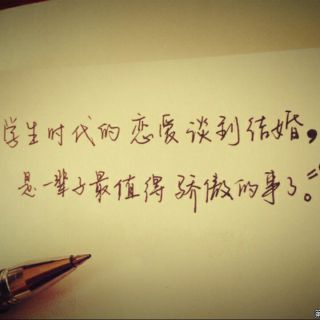 学生时代的恋爱谈到结婚，
是一辈子最值得骄傲的事了。”